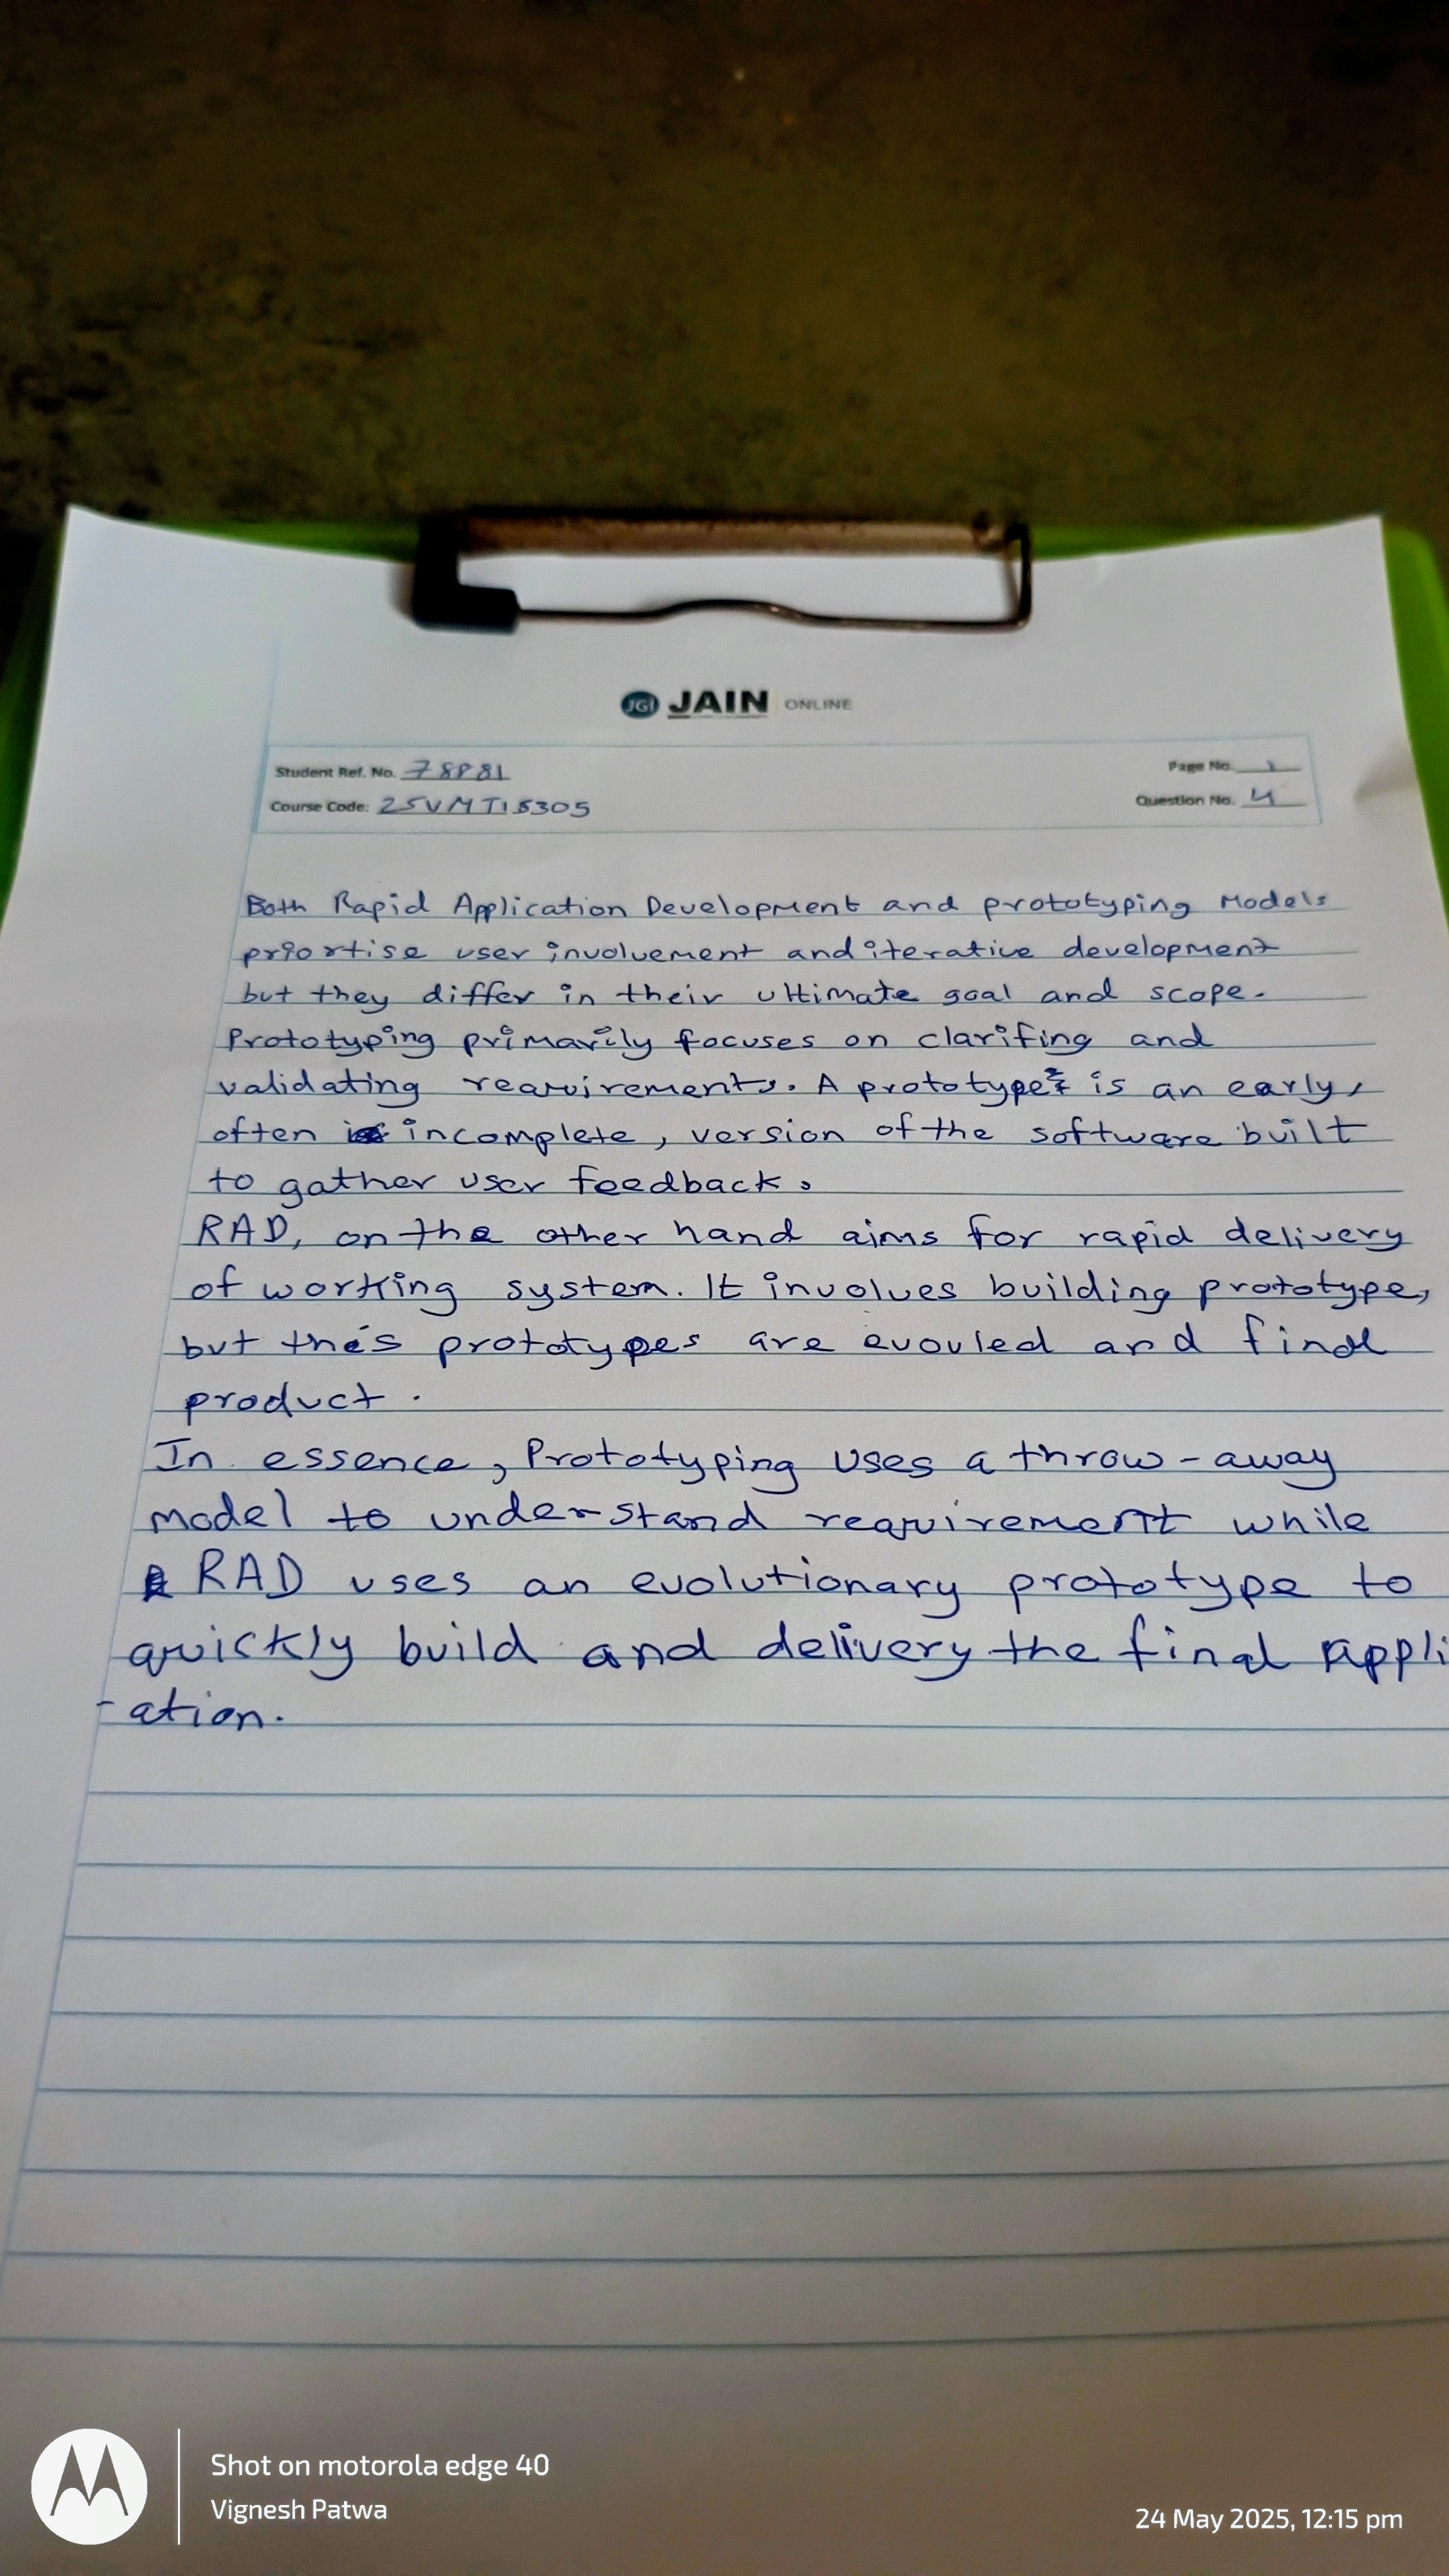 JGI JAIN ONLINE
Student Ref. No. 78881
Page No. 1
Course Code: 25VMT15305
Question No. 4
Both Rapid Application Development and prototyping Models
priortise user involvement and iterative development
but they differ in their ultimate goal and scope.
Prototyping primarily focuses on clarifing and
validating requirements. A prototype is an early,
often incomplete, version of the software built
to gather user feedback.
RAD, on the other hand aims for rapid delivery
of working system. It involves building prototype,
but thes prototypes are evouled and final
product.
In essence, Prototyping uses a throw-away
model to understand requirement while
RAD uses an evolutionary prototype to
quickly build and delivery the final Appli
-ation.
Shot on motorola edge 40
Vignesh Patwa
24 May 2025, 12:15 pm